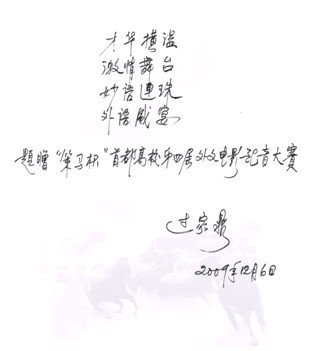 才华横溢
激情舞台
妙语連珠
外语盛宴
题贈“策马杯”首都高校第四届外文电影配音大赛
过家鼎
2009年12月6日